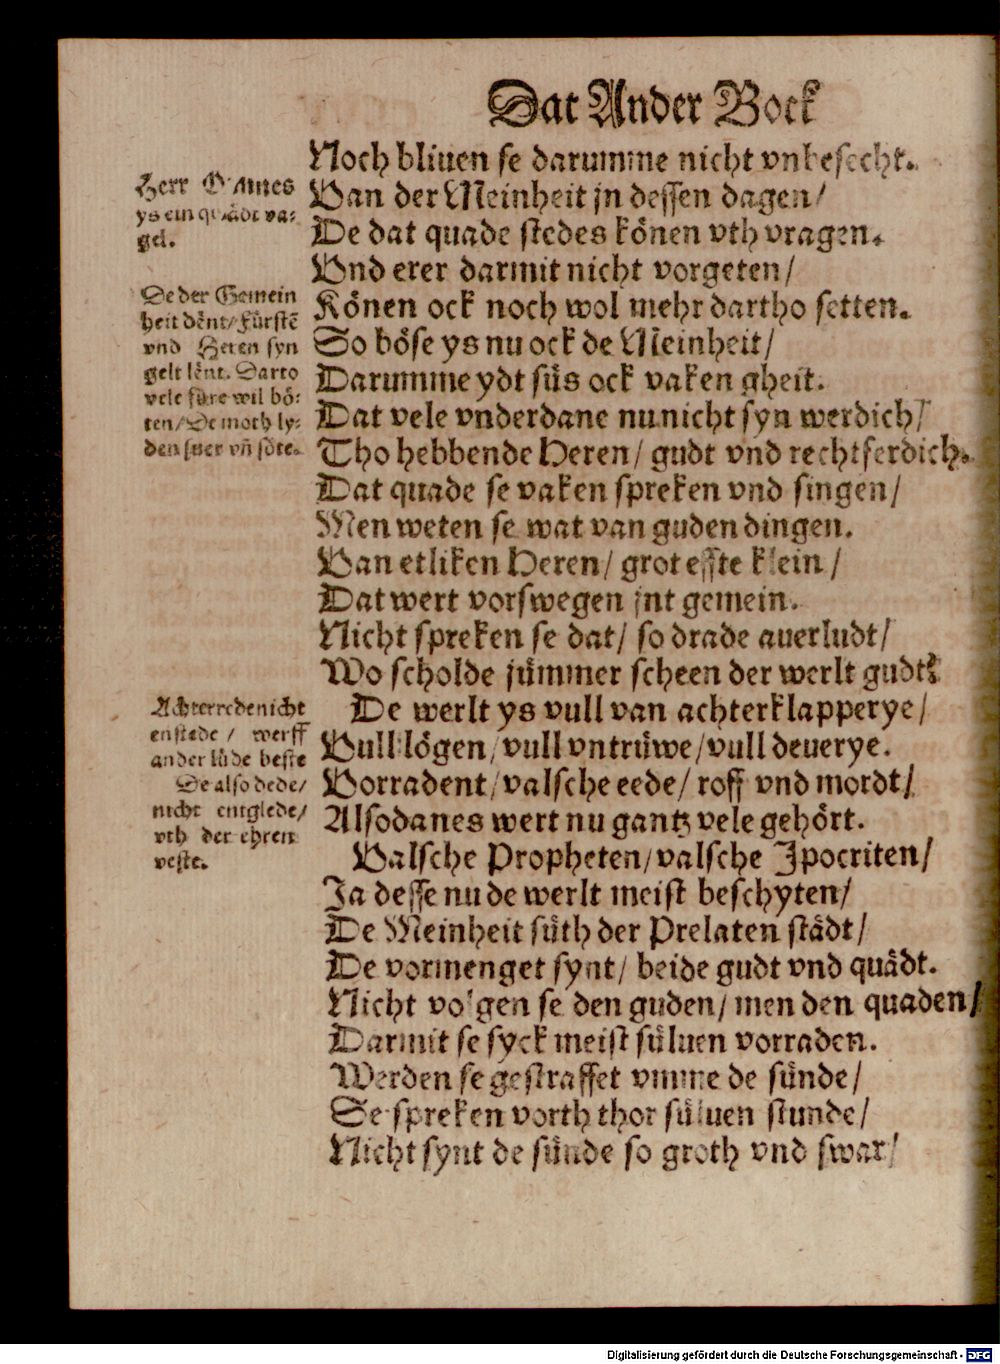 Dat Ander Bock
Noch bliuen se darumme nicht vnbesecht.
Herr Omnes
ys ein quådt va-
gel.
Van der Meinheit jn dessen dagen/
De dat quade stedes kônen vth vragen.
Vnd erer darmit nicht vorgeten/
De der Gemein
heit dênt/ Fürstē
vnd Heren syn
gelt lênt. Darto
vele füre wil bô-
ten/ De moth ly-
den suer vñ sôte.
Kônen ock noch wol mehr dartho setten.
So bôse ys nu ock de Meinheit/
Darumme ydt süs ock vaken gheit.
Dat vele vnderdane nu nicht syn werdich/
Tho hebbende Heren/ gudt vnd rechtferdich.
Dat quade se vaken spreken vnd singen/
Men weten se wat van guden dingen.
Van etliken Heren/ grot effte klein/
Dat wert vorswegen jnt gemein.
Nicht spreken se dat/ so drade auerludt/
Wo scholde jümmer scheen der werlt gudt?
Achterrede nicht
enstede / werff
ander lüde beste
De also dede/
nicht entglede/
vth der ehren
veste.
De werlt ys vull van achterklapperye/
Vull lôgen/ vull vntrüwe/ vull deuerye.
Vorradent/ valsche eede/ roff vnd mordt/
Alsodanes wert nu gantz vele gehôrt.
Valsche Propheten/ valsche Jpocriten/
Ja desse nu de werlt meist beschyten/
De Meinheit süth der Prelaten stådt/
De vormenget synt/ beide gudt vnd quådt.
Nicht volgen se den guden/ men den quaden/
Darmit se syck meist süluen vorraden.
Werden se gestraffet vmme de sünde/
Se spreken vorth thor süluen stunde/
Nicht synt de sünde so groth vnd swar/
Digitalisierung gefördert durch die Deutsche Forschungsgemeinschaft - DFG